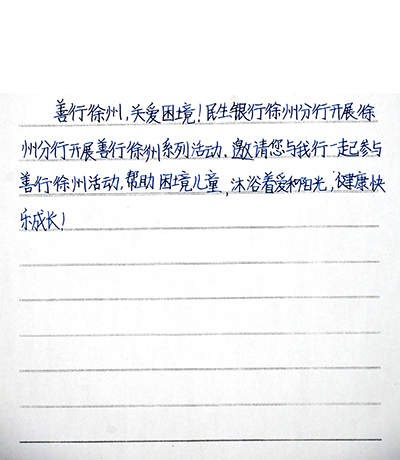 善行徐州,关爱困境!民生银行徐州分行开展徐
州分行开展善行徐州系列活动,邀请您与我行一起参与
善行徐州活动,帮助困境儿童,沐浴着爱和阳光,健康快
乐成长!